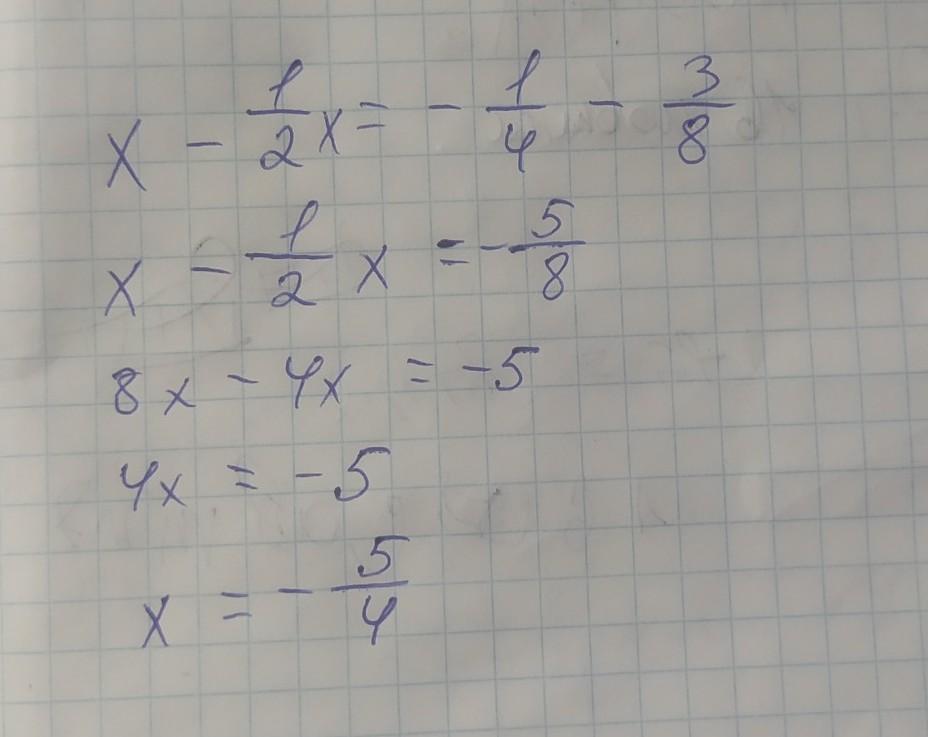 x - 1/2 x = - 1/4 - 3/8
x - 1/2 x = - 5/8
8x - 4x = -5
4x = -5
x = - 5/4